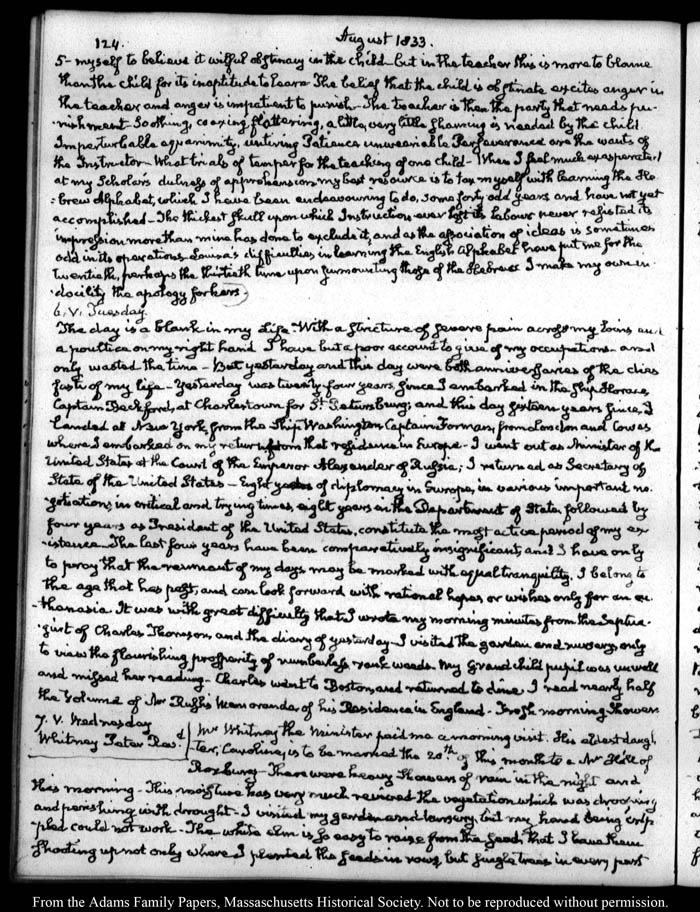 124.
August 1833.
5- myself to believe it wilful obstinacy in the child- but in the teacher this is more to blame
than the child for its inaptitude to learn. The belief that the child is obstinate excites anger in
the teacher and anger is impatient to punish- The teacher is then the party that needs pu-
-nishment. Soothing, coaxing, flattering, a little, very little shaming is needed by the child.
Imperturbable equanimity, untiring Patience unweariable Perseverance are the wants of
the Instructor- What trials of temper for the teaching of one child- When I feel much exasperated
at my Scholar's dulness of apprehension, my best resource is to tax myself with learning the He-
-brew Alphabet, which I have been endeavouring to do, some forty odd years and have not yet
accomplished- The thickest skull upon which Instruction ever lost its labour never resisted its
impression more than mine has done to exclude it, and as the association of ideas is sometimes
odd in its operations Louisa's difficulties in learning the English Alphabet have put me for the
twentieth, perhaps the thirtieth time upon surmounting those of the Hebrew. I make my own in-
-docility the apology for hers.
6. V. Tuesday.
The day is a blank in my Life- With a stricture of severe pain across my loins and
a poultice on my right hand I have but a poor account to give of my occupations- and
only wasted the time- But yesterday and this day were both anniversaries of the dies
fasti of my life- Yesterday was twenty four years since I embarked in the Ship Horace,
Captain Beckford, at Charlestown for St. Petersburg; and this day sixteen years since, I
landed at New York, from the Ship Washington Captain Forman, from London and Cowes
where I embarked on my return from that residence in Europe- I went out as Minister of the
United States at the Court of the Emperor Alexander of Russia; I returned as Secretary of
State of the United States- Eight years of diplomacy in Europe, in various important ne-
gotiations, in critical and trying times, eight years in the Department of State, followed by
four years as President of the United States, constitute the most active period of my ex-
-istence- The last four years have been comparatively insignificant, and I have only
to pray that the remnant of my days may be marked with equal tranquility. I belong to
the age that has past, and can look forward with rational hopes or wishes only for an eu-
-thanasia. It was with great difficulty that I wrote my morning minutes from the Septua-
-gint of Charles Thomson, and the diary of yesterday- I visited the garden and nursery, only
to view the flourishing prosperity of numberless rank weeds. My Grandchild pupil was unwell
and missed her reading- Charles went to Boston, and returned to dine- I read nearly half
the Volume of Mr Rush's Memoranda, of his Residence in England- Fresh morning Shower
7. V. Wednesday
Whitney Peter Revd.
Mr Whitney the Minister paid me a morning visit. His eldest daugh-
ter, Caroline, is to be married the 20th of this month to a Mr Hill of
Roxbury- There were heavy Showers of rain in the night and
this morning- This moisture has very much revived the vegetation which was drooping
and perishing with drought- I visited my garden and nursery, but my hand being crip-
-pled could not work- The white elm is so easy to raise from the seed, that I have them
shooting up not only where I planted the seeds in rows, but single trees in every part
From the Adams Family Papers, Massachusetts Historical Society. Not to be reproduced without permission.